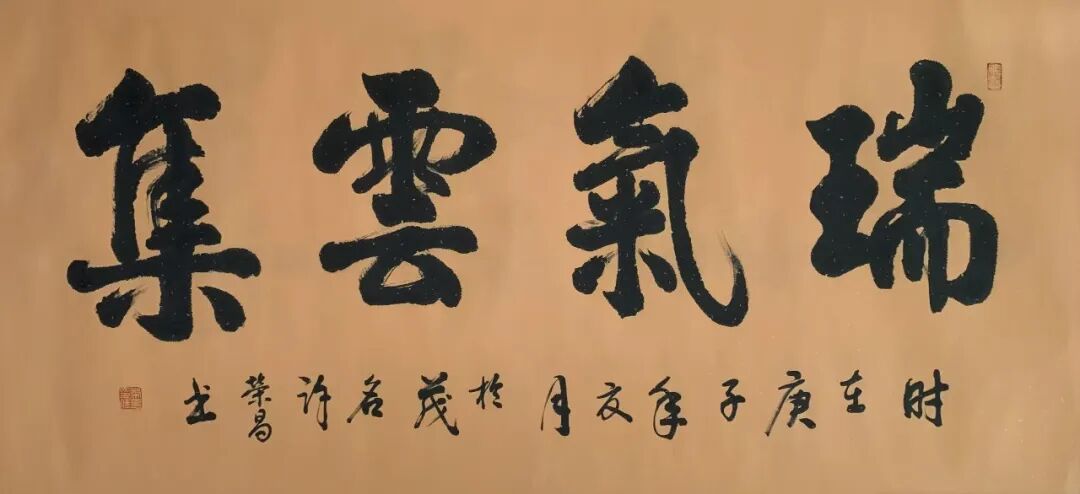 瑞氣雲集
时在庚子年夏月於茂名许荣昌书